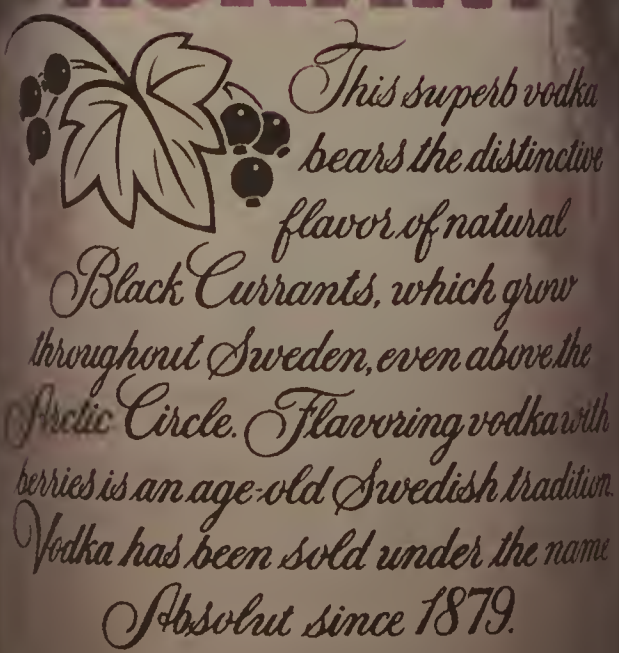 This superb vodka
bears the distinctive
flavor of natural
Black Currants, which grow
throughout Sweden, even above the
Arctic Circle. Flavoring vodka with
berries is an age-old Swedish tradition.
Vodka has been sold under the name
Absolut since 1879.